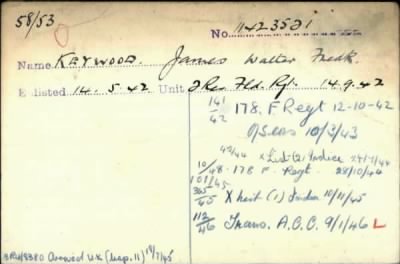 58/53
No. 11423521
Name KEYWOOD. James Walter Fredk.
Enlisted 14.5.42 Unit 2 Res. Fld. Rgt. 14.9.42
141/42 178. F. Regt 12-10-42
O/Seas 10/3/43
43/44 X List (2) Indica
10/48 178 F. Regt. 28/10/44
101/45
365/45 X list (1) 10/11/45
112/46 Trans. A.C.C. 9/1/46 L
Arrived U.K. (Leap. 11) 18/7/45